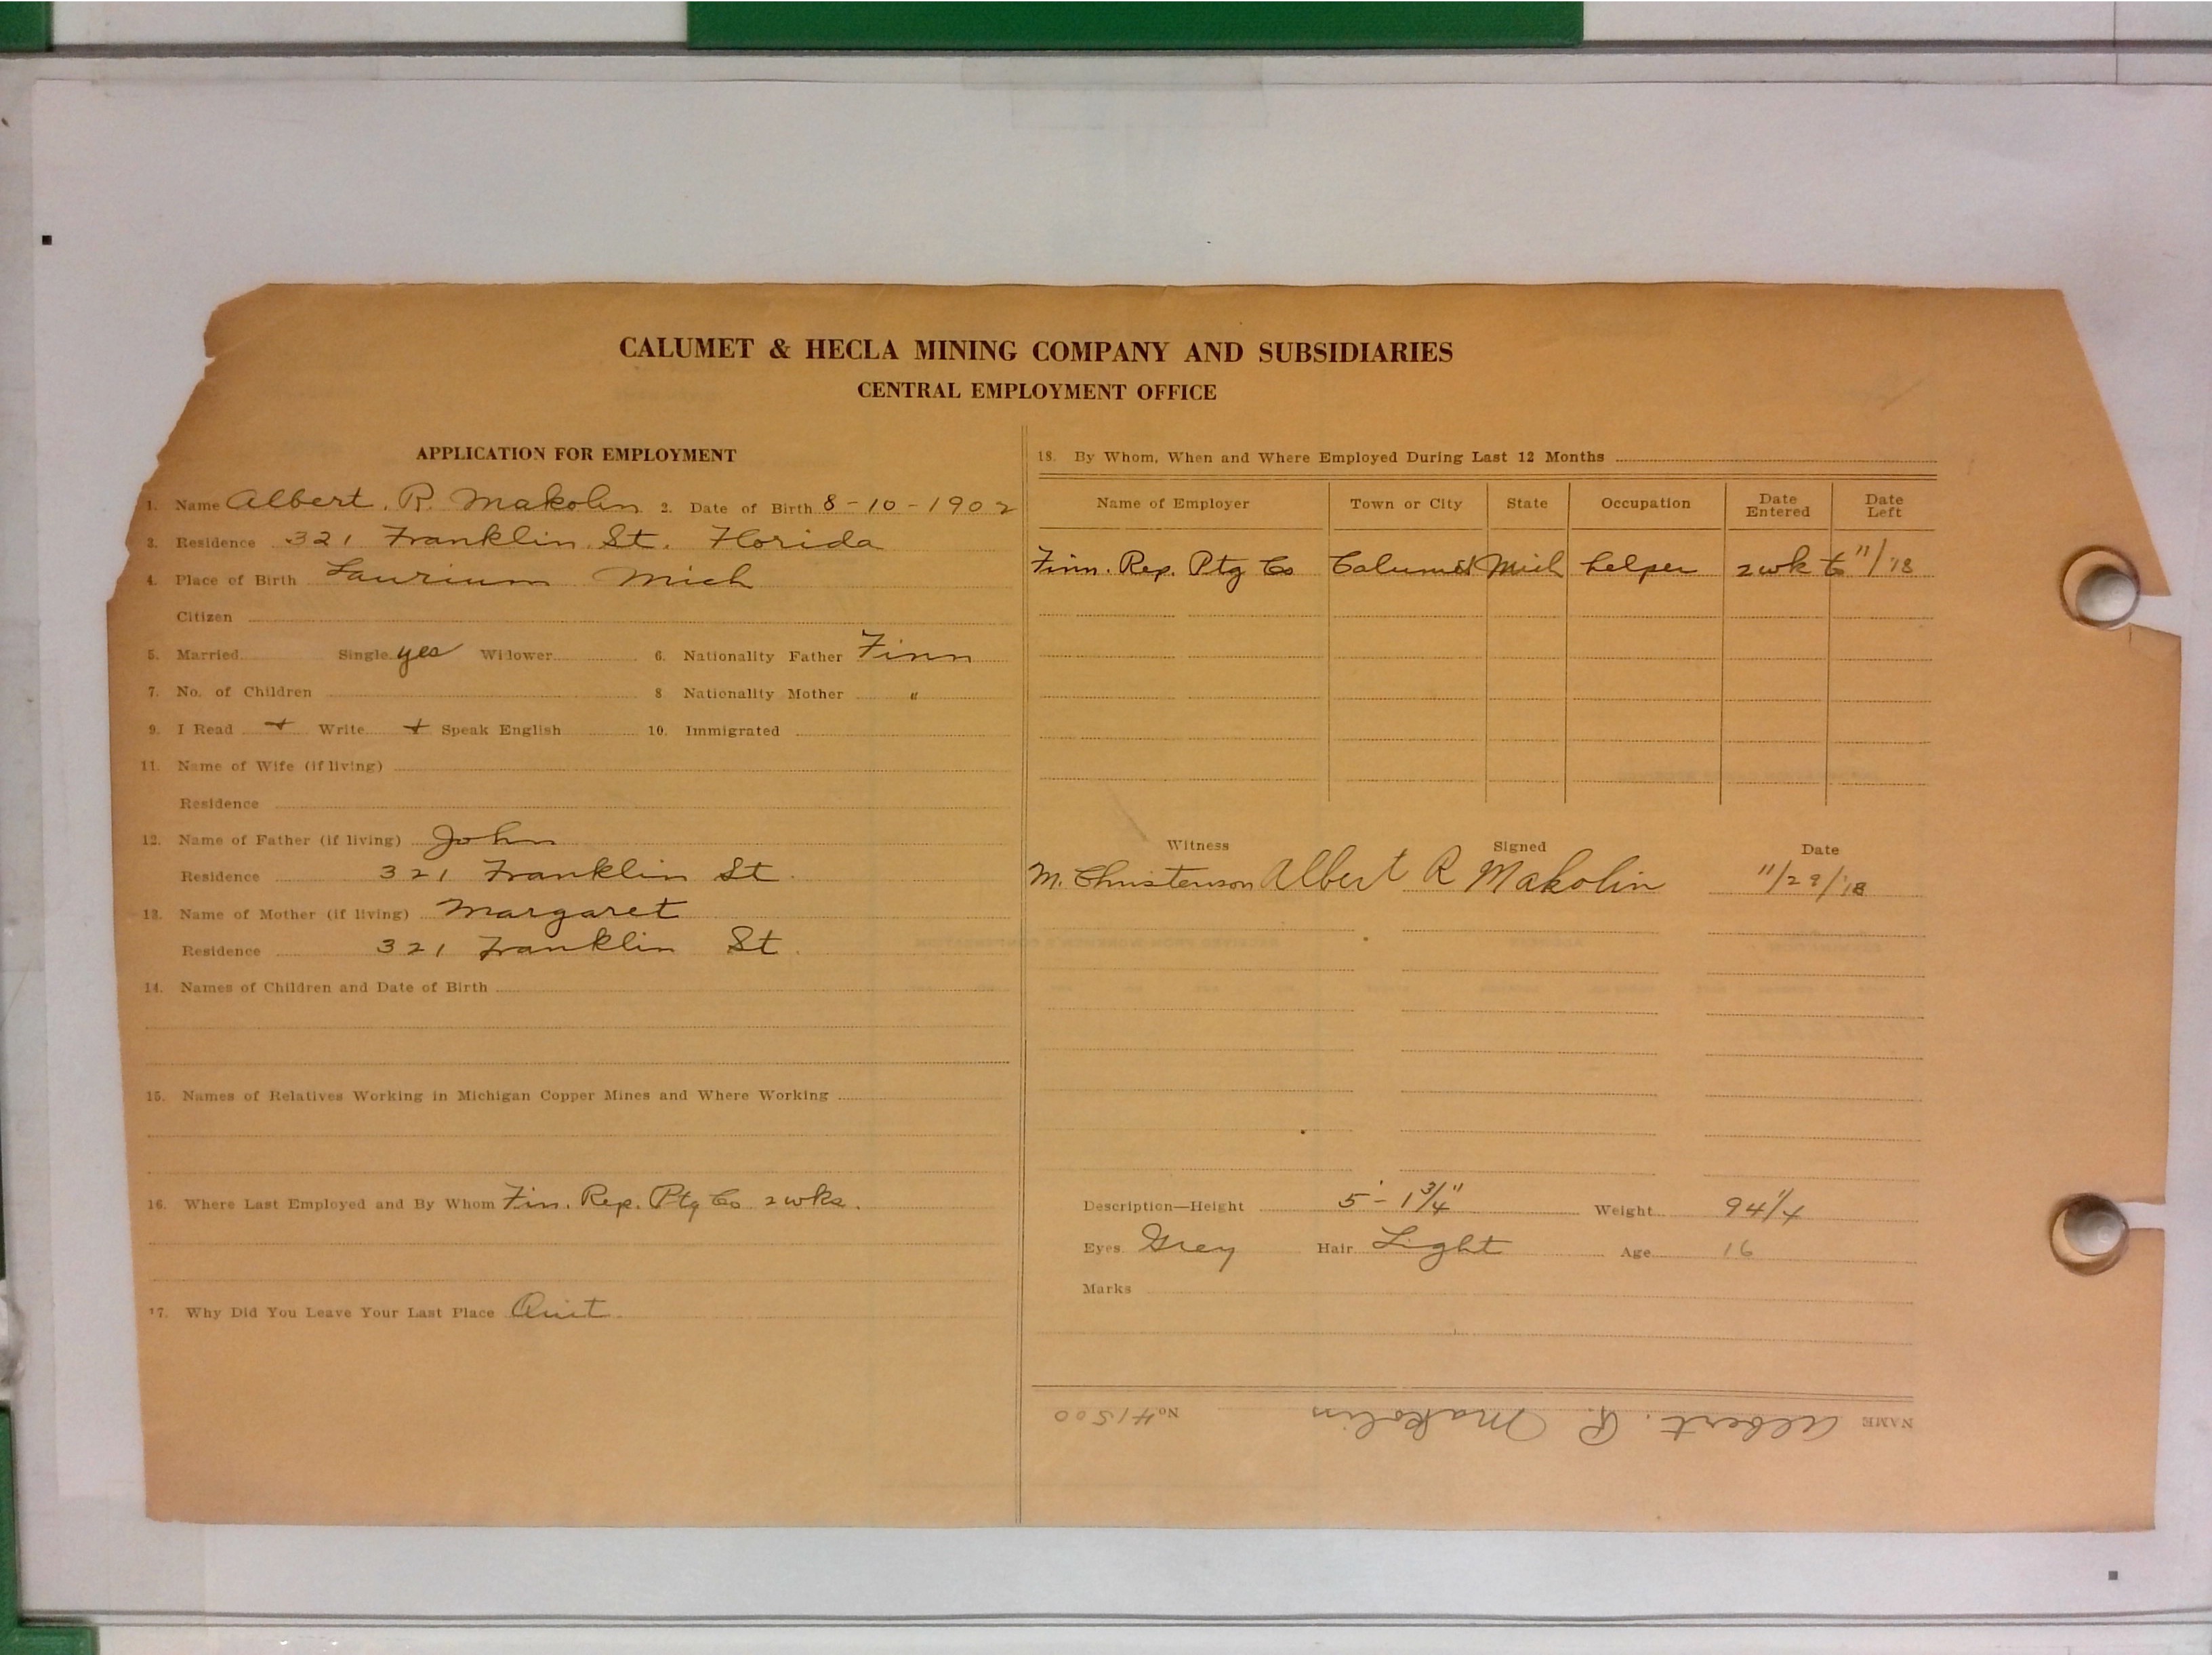 CALUMET & HECLA MINING COMPANY AND SUBSIDIARIES
CENTRAL EMPLOYMENT OFFICE
APPLICATION FOR EMPLOYMENT
1. Name Albert. R. Makolin 2. Date of Birth 8-10-1902
3. Residence 321 Franklin St. Florida
4. Place of Birth Laurium Mich
Citizen
5. Married Single yes Widower 6. Nationality Father Finn
7. No. of Children 8 Nationality Mother "
9. I Read + Write + Speak English 10. Immigrated
11. Name of Wife (if living)
Residence
12. Name of Father (if living) John
Residence 321 Franklin St.
13. Name of Mother (if living) Margaret
Residence 321 Franklin St.
14. Names of Children and Date of Birth
15. Names of Relatives Working in Michigan Copper Mines and Where Working
16. Where Last Employed and By Whom Fin. Rep. Ptg Co 2 wks.
17. Why Did You Leave Your Last Place Quit
18. By Whom, When and Where Employed During Last 12 Months
Name of Employer Town or City State Occupation Date Entered Date Left
Finn. Rep. Ptg Co Calumet Mich helper 2 wk to 11/18
Witness Signed Date
M. Christenson Albert R Makolin 11/29/18
Description—Height 5'-1 3/4" Weight 94 1/4
Eyes Grey Hair Light Age 16
Marks
NAME Albert. R. Makolin No. 41500